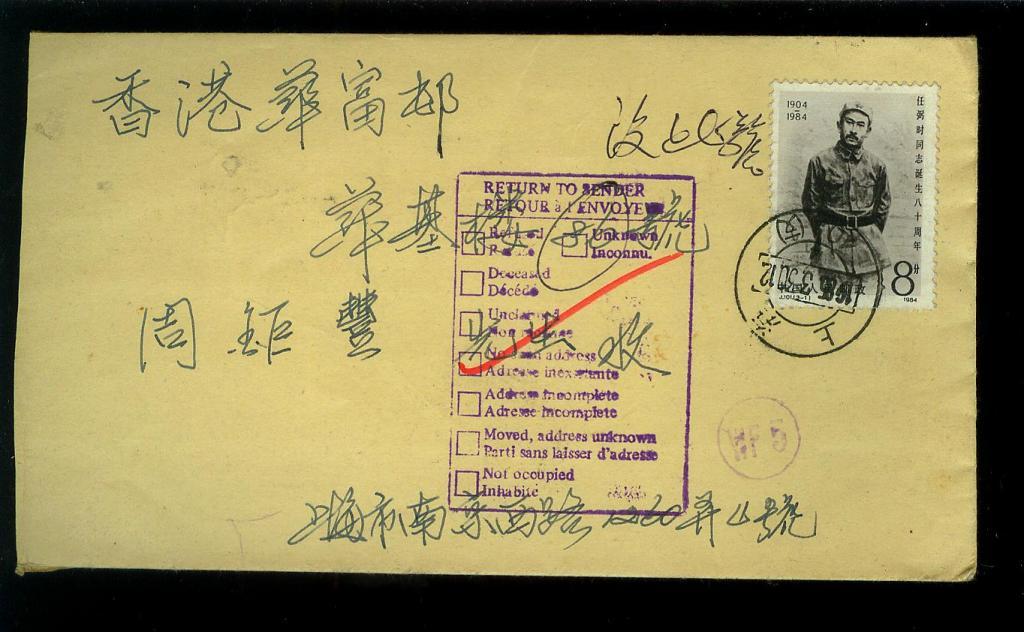 香港華富邨
沒此號
1904
1984
任弼时同志诞生八十周年
華基樓 號
周鉅豐 先生 收
8 分
J.100.(3-1)
1984
上海
RETURN TO SENDER
RETOUR à l'ENVOYEUR
Refused
Unknown
Inconnu.
Deceased
Décédé
Unclaimed
Non réclamé
No such address
Adresse inexistante
Address incomplete
Adresse incomplete
Moved, address unknown
Parti sans laisser d'adresse
Not occupied
Inhabité
WF 5
上海市南京西路 弄 號